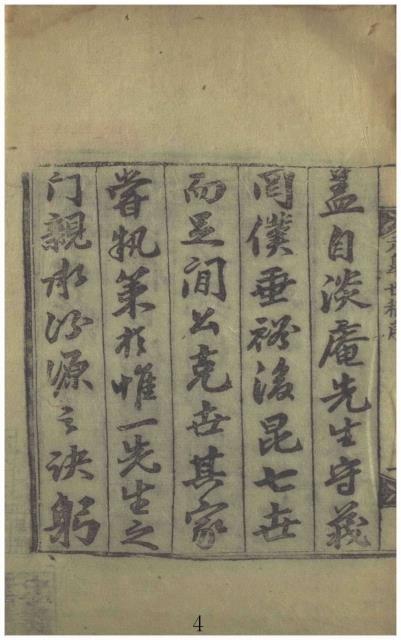 蓋自淡庵先生守義
罔僕垂裕後昆七世
而是閒公克世其家
嘗執策於惟一先生之
门親承淵源之訣躬
4